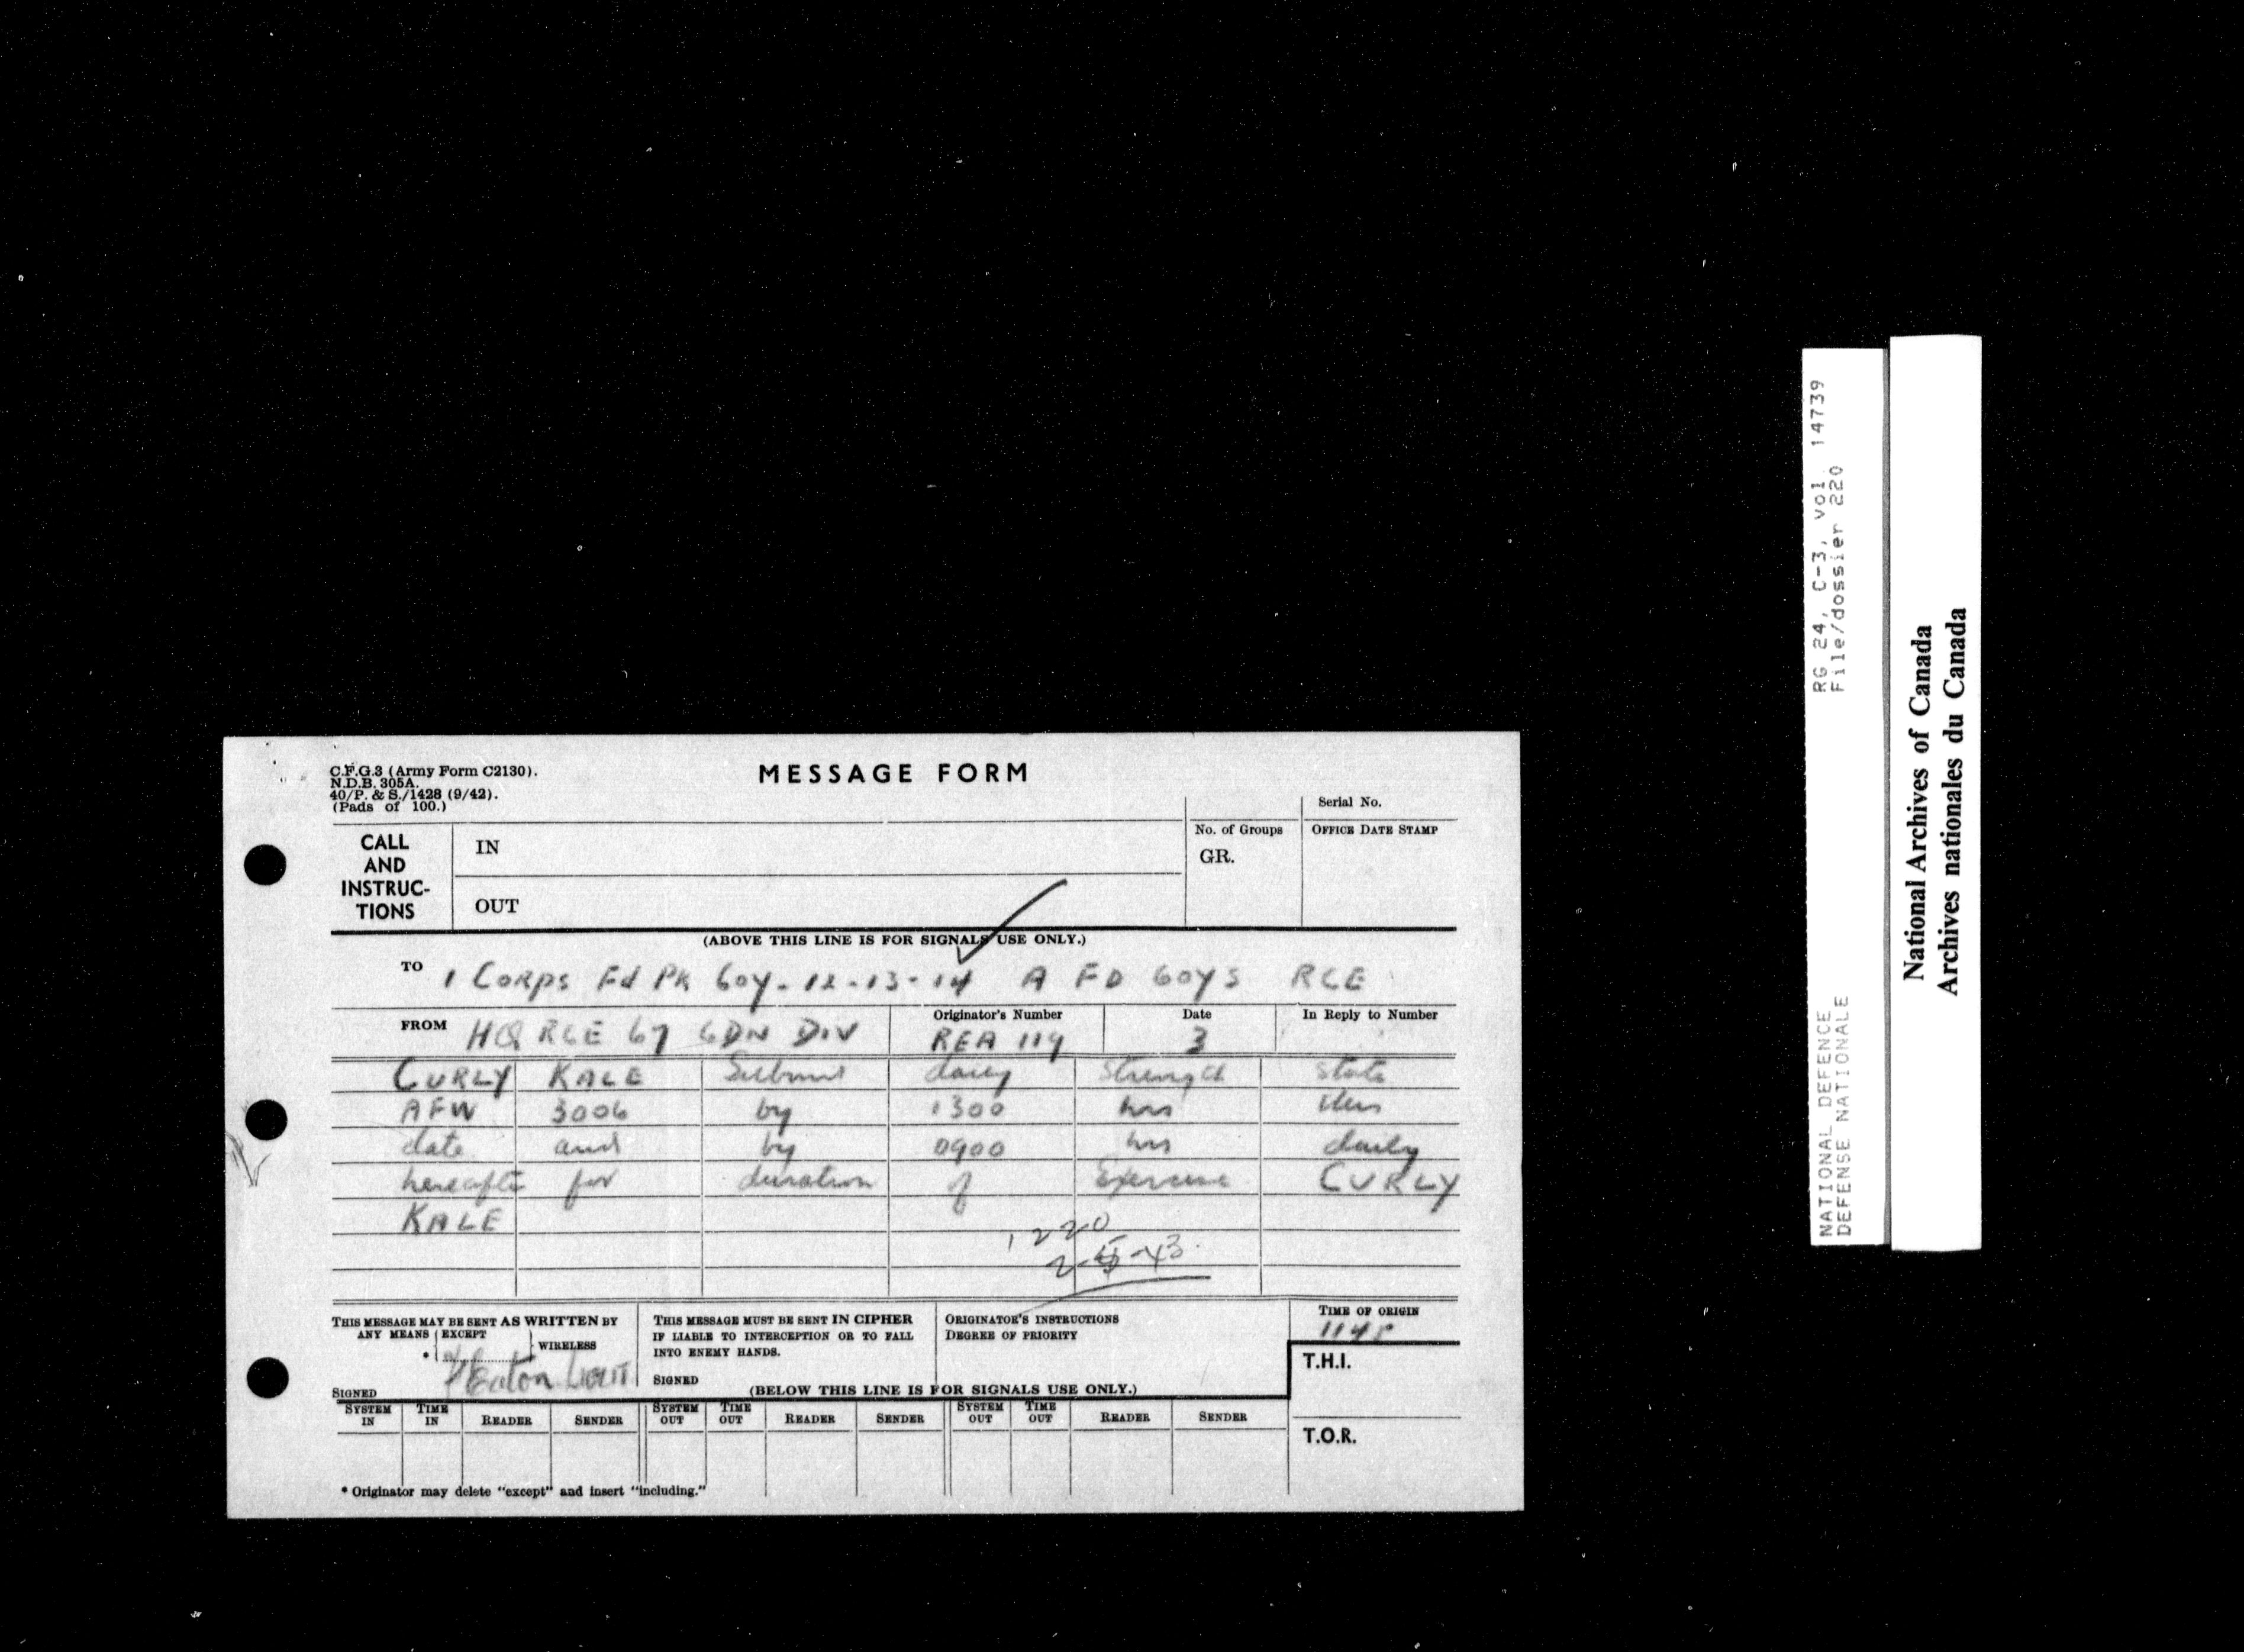 C.F.G.3 (Army Form C2130).
N.D.B. 305A.
40/P. & S./1428 (9/42).
(Pads of 100.)
MESSAGE FORM
Serial No.
CALL AND INSTRUC-TIONS
IN
OUT
No. of Groups
GR.
OFFICE DATE STAMP
(ABOVE THIS LINE IS FOR SIGNALS USE ONLY.)
TO 1 Corps Fd Pk Coy - 12 - 13 - 14 A FD COYS RCE
FROM HQ RCE 67 CDN DIV
Originator's Number REA 119
Date 3
In Reply to Number
CURLY KALE Submit daily strength state
AFW 3006 by 1300 hrs this
date and by 0900 hrs daily
hereafter for duration of Exercise CURLY
KALE
1220
2-5-43
THIS MESSAGE MAY BE SENT AS WRITTEN BY
ANY MEANS EXCEPT WIRELESS
*
SIGNED Heaton LIEUT
THIS MESSAGE MUST BE SENT IN CIPHER
IF LIABLE TO INTERCEPTION OR TO FALL
INTO ENEMY HANDS.
SIGNED
ORIGINATOR'S INSTRUCTIONS
DEGREE OF PRIORITY
TIME OF ORIGIN
1145
T.H.I.
T.O.R.
(BELOW THIS LINE IS FOR SIGNALS USE ONLY.)
SYSTEM IN TIME IN READER SENDER SYSTEM OUT TIME OUT READER SENDER SYSTEM OUT TIME OUT READER SENDER
* Originator may delete "except" and insert "including."
NATIONAL DEFENCE RG 24, C-3, vol. 14739
DEFENSE NATIONALE File/dossier 220
National Archives of Canada
Archives nationales du Canada